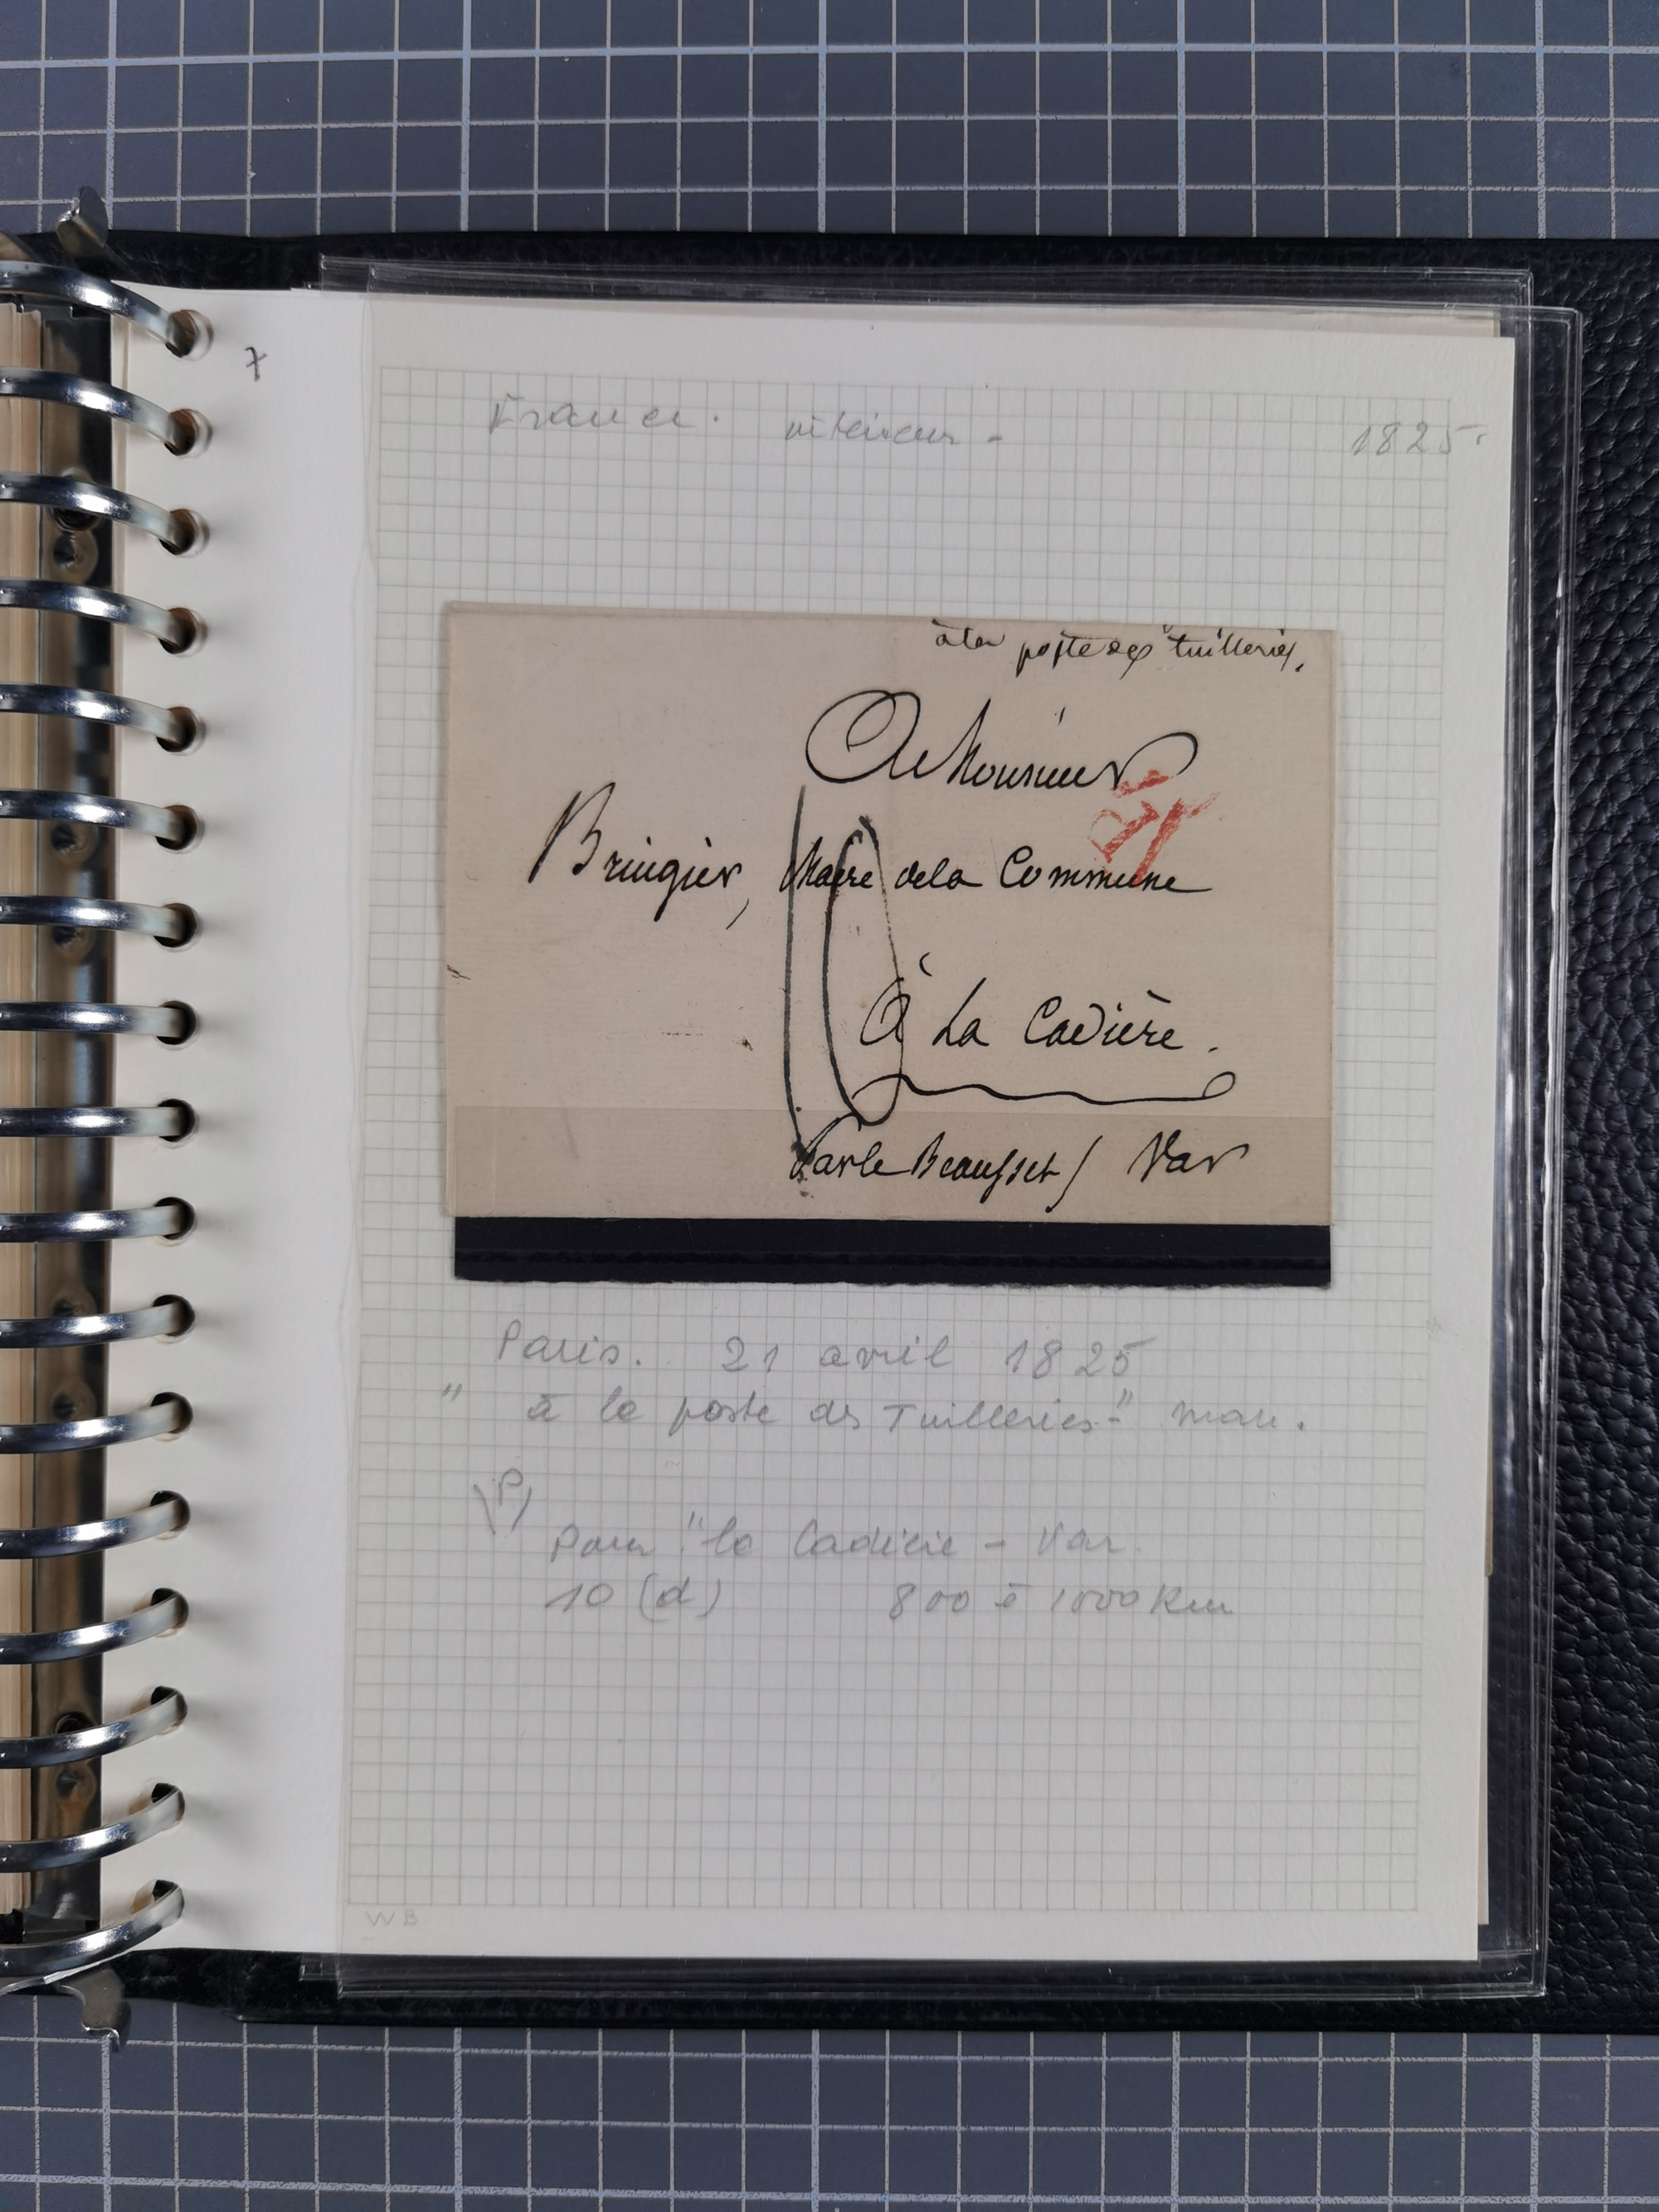 7
France. intérieur - 1825.
à la poste des tuilleries.
A Monsieur
P
Bringier, Maire de la Commune
10
À La Cadière.
Par le Beausset / Var
Paris. 21 avril 1825
" à la poste des Tuilleries-" man.
P
Pour "la Cadière - Var.
10 (d) 800 à 1000 Km
WB